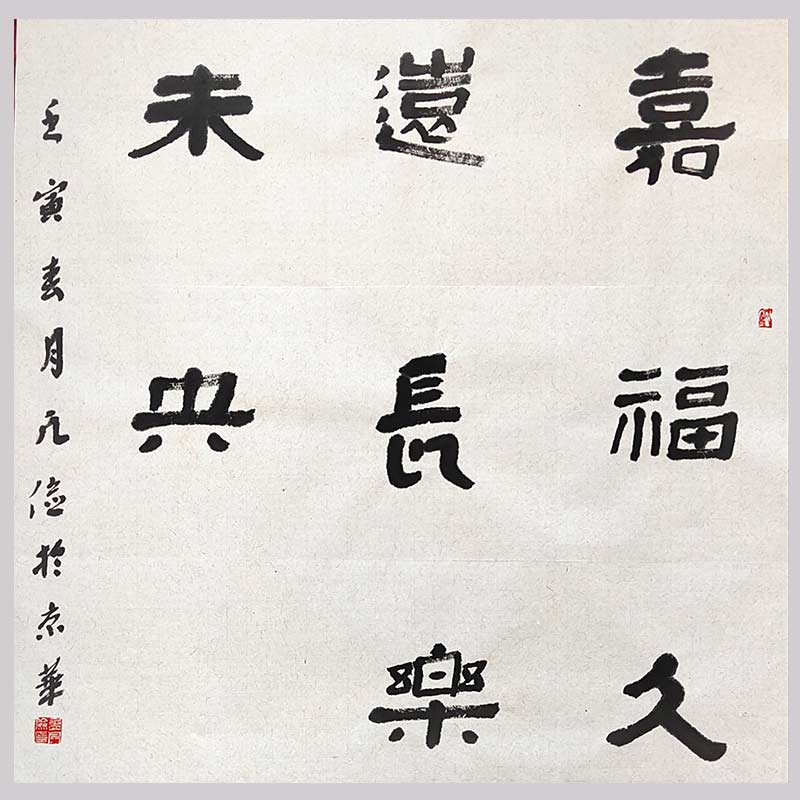 嘉福久
遠長樂
未央
壬寅春月於京華